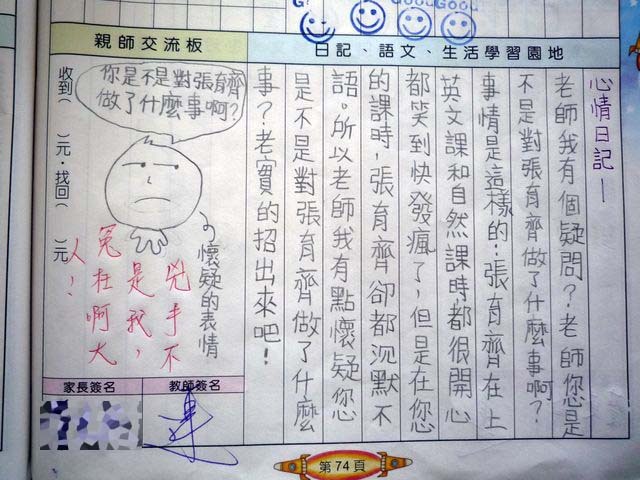 GOOD
GOOD
親師交流板
日記、語文、生活學習園地
心情日記—
老師我有個疑問？老師您是
不是對張育齊做了什麼事啊？
事情是這樣的：張育齊在上
英文課和自然課時都很開心
都笑到快發瘋了，但是在您
的課時，張育齊卻都沉默不
語。所以老師我有點懷疑您
是不是對張育齊做了什麼
事？老實的招出來吧！
收到（　）元．找回（　）元
你是不是對張育齊
做了什麼事啊？
懷疑的表情
兇手不
是我，
冤枉啊大
人！
家長簽名
教師簽名
第74頁